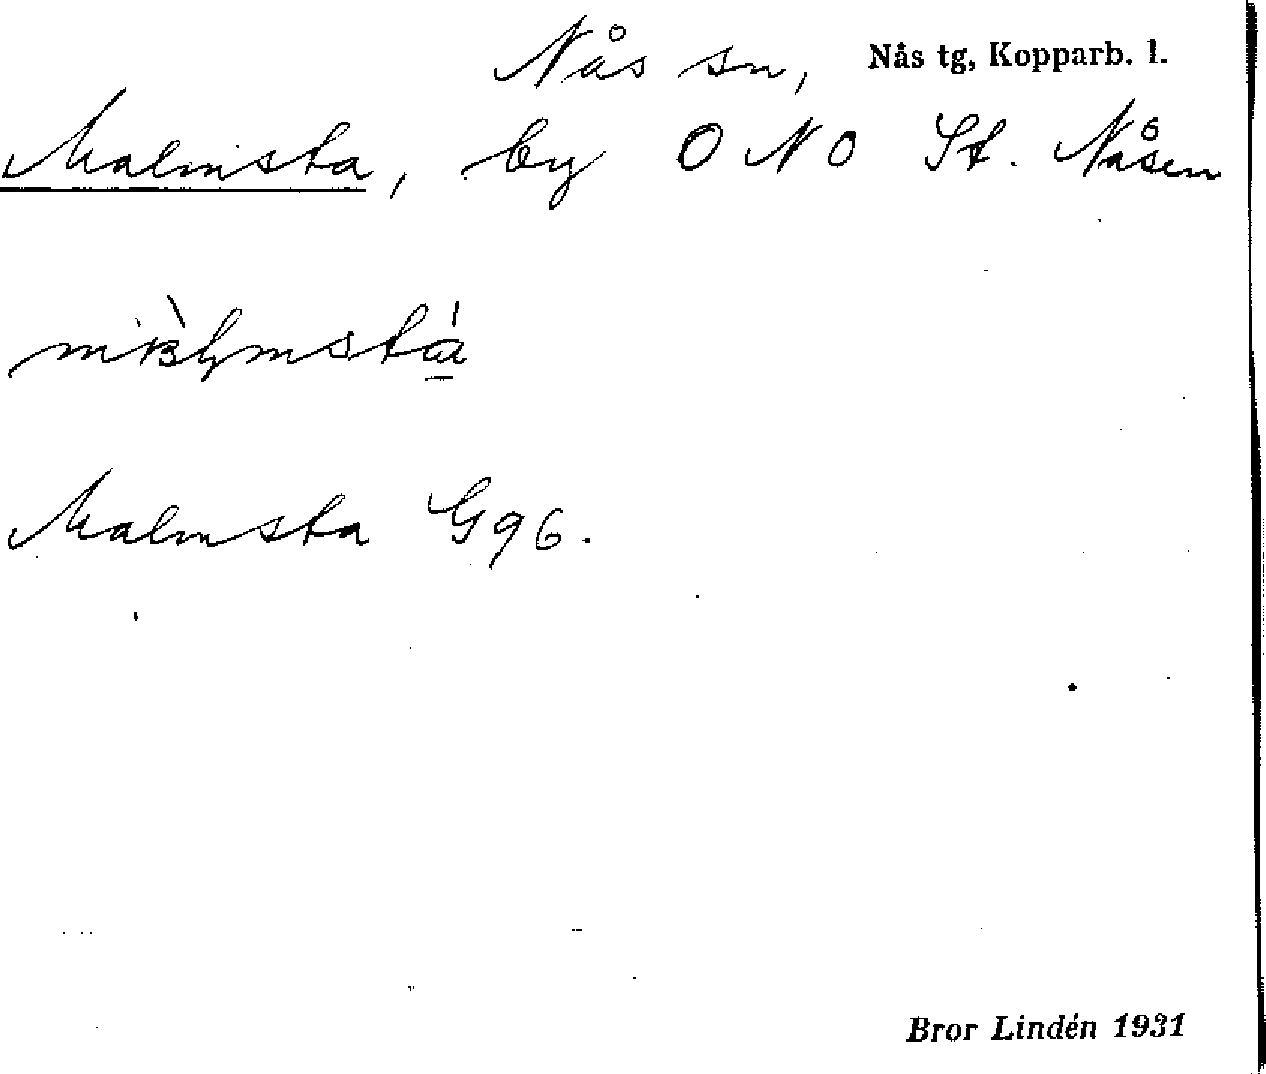 Nås sn, Nås tg, Kopparb. l.
Malmsta, by O N O St. Nåsen
Malmsta G 96.
Bror Lindén 1931